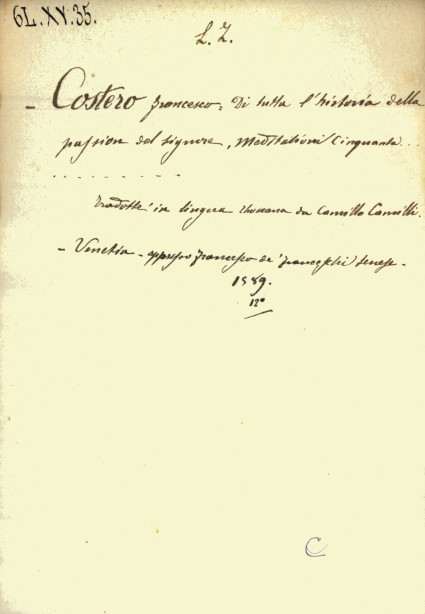 6L.XV.35.
L. Z.
- Costero Francesco: Di tutta l'historia della
passion del signore, Meditationi Cinquanta...
. . . . . . . . . .
tradotte in lingua thoscana da Camillo Camilli.
- Venetia - appresso Francesco de' Franceschi senese -
1589.
12º
C